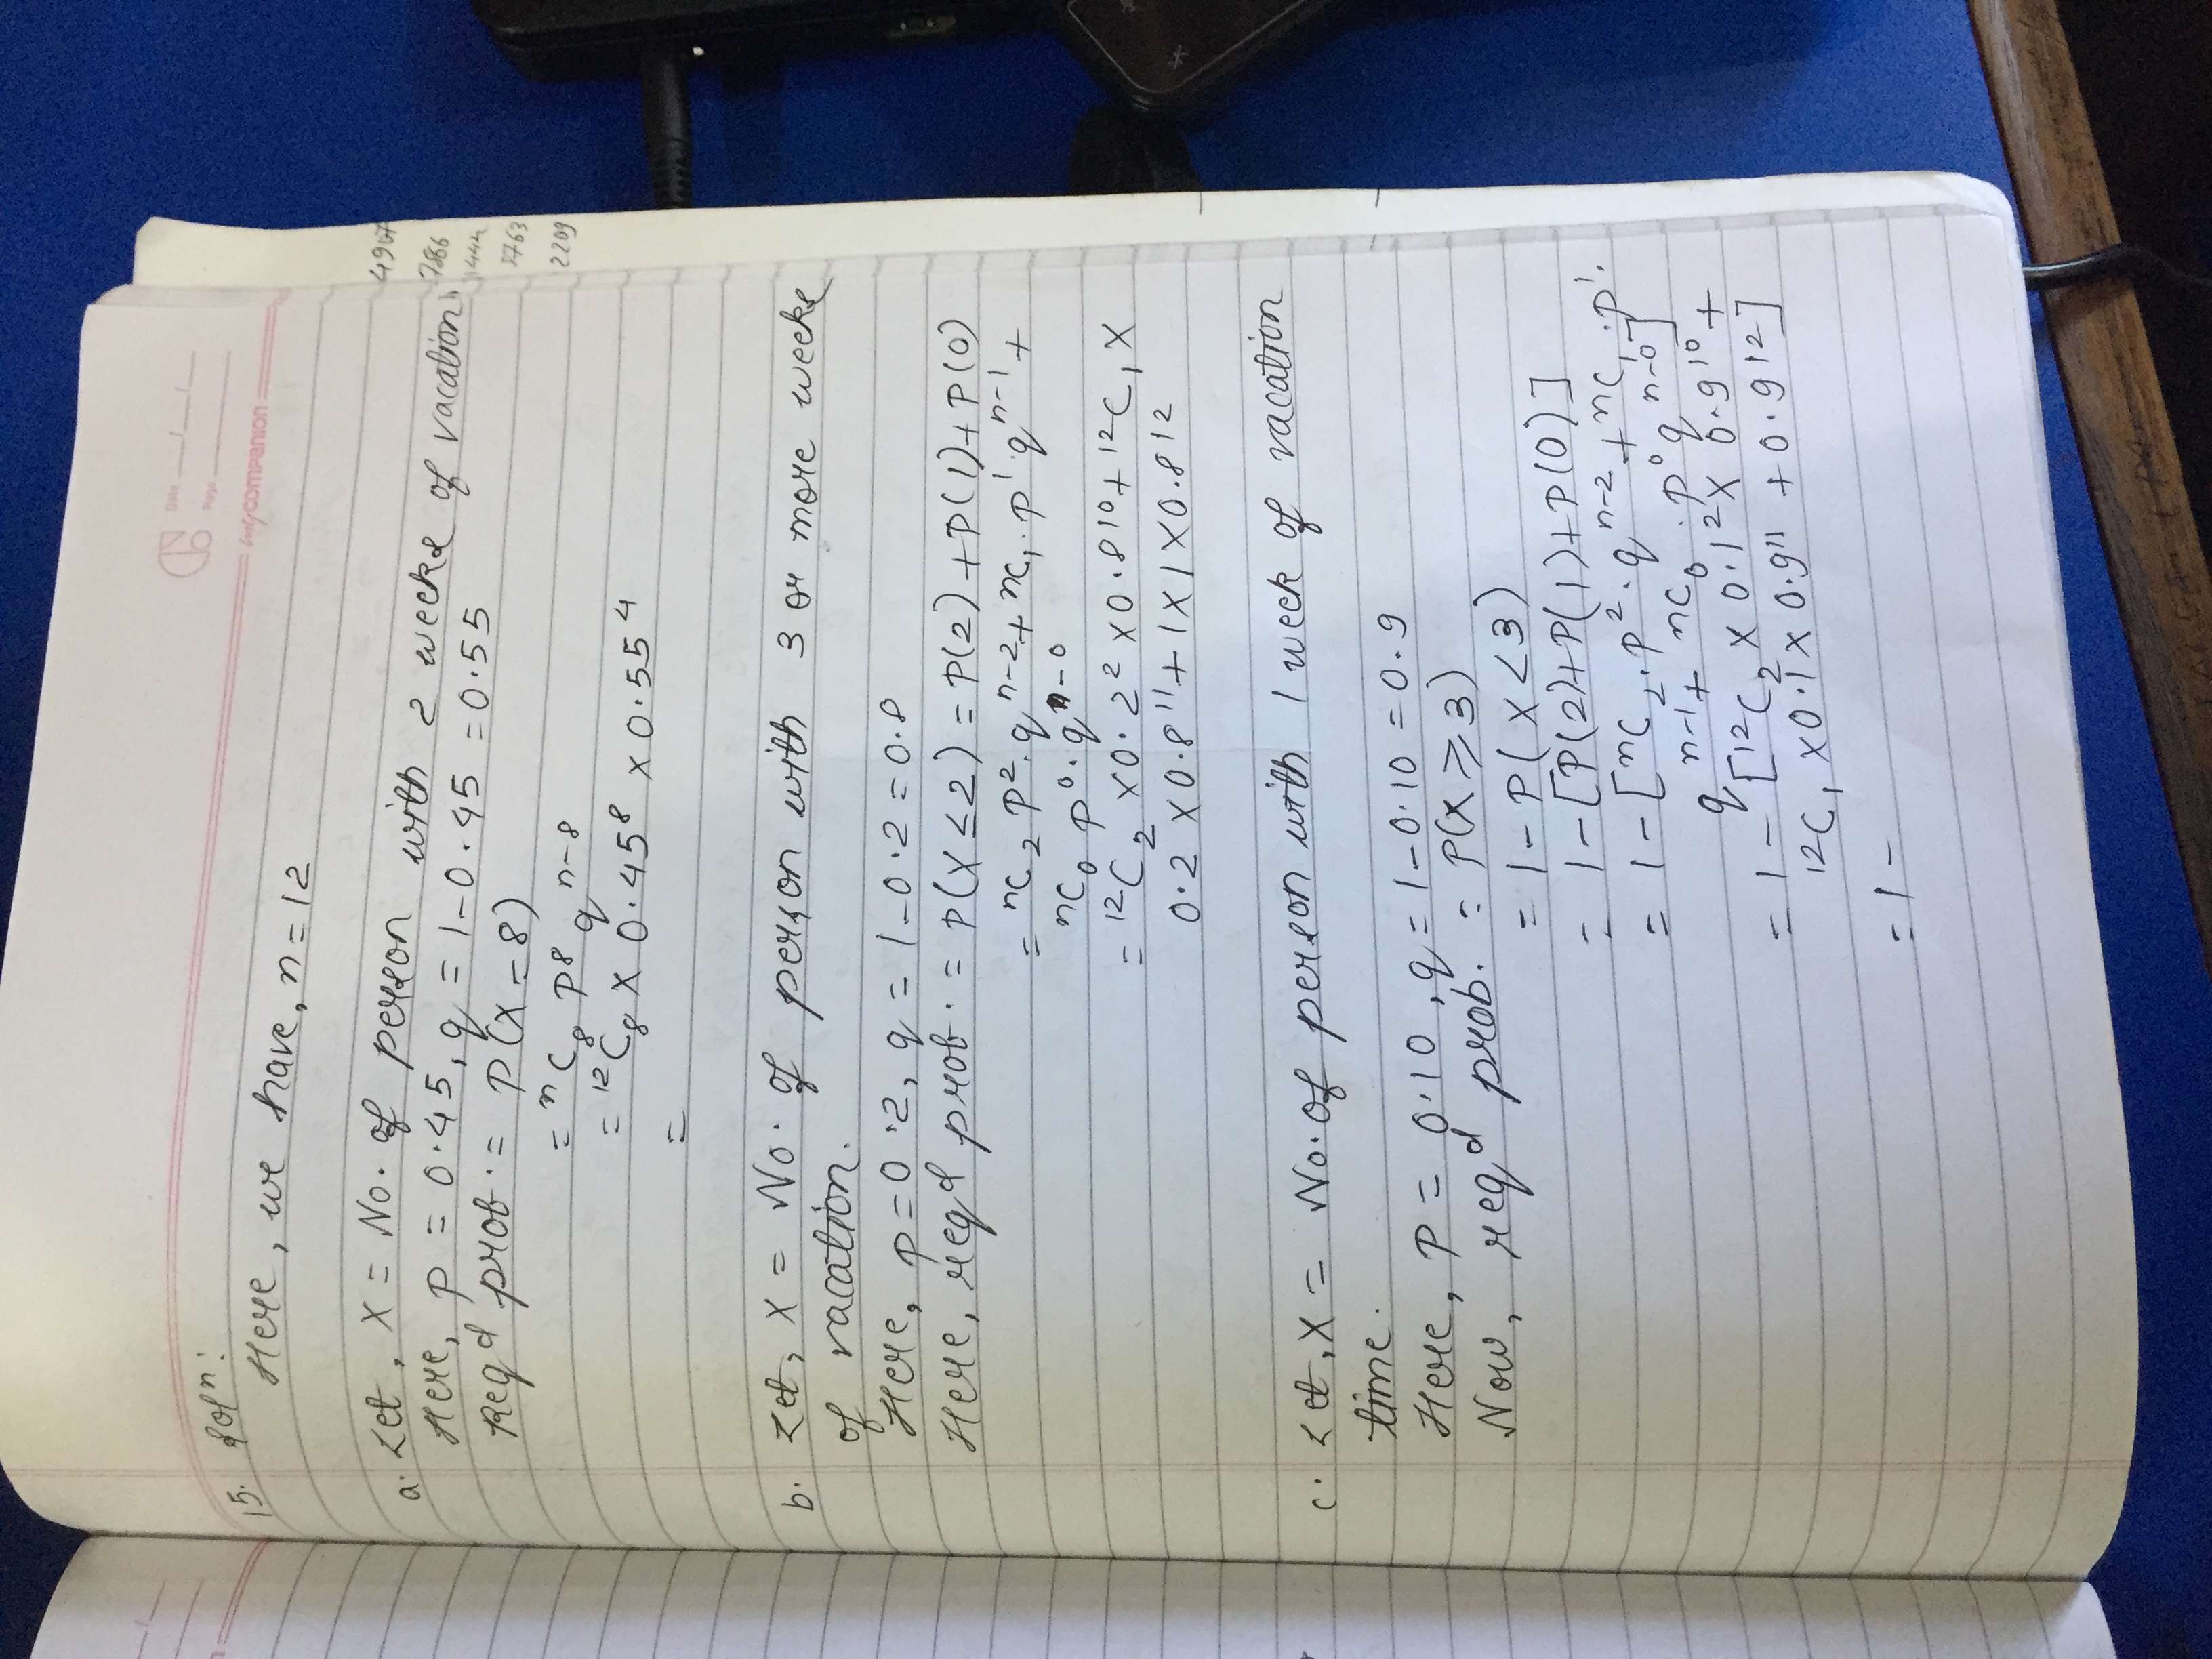 Date __/__/__
Page
mycompanion
15. Solⁿ:
Here, we have, n = 12
a. Let, X = No. of person with 2 weeks of vacation.
Here, p = 0.45, q = 1-0.45 = 0.55
Reqᵈ prob. = P(X=8)
= ⁿC₈ P⁸ qⁿ⁻⁸
= ¹²C₈ × 0.45⁸ × 0.55⁴
=
b. Let, X = No. of person with 3 or more weeks
of vacation.
Here, p=0.2, q = 1-0.2 = 0.8
Here, reqᵈ prob. = P(X≤2) = P(2)+P(1)+P(0)
= ⁿC₂ P².qⁿ⁻²+ⁿC₁.p¹.qⁿ⁻¹+
ⁿC₀ p⁰.qⁿ⁻⁰
= ¹²C₂ ×0.2² ×0.8¹⁰+¹²C₁×
0.2 ×0.8¹¹+1×1×0.8¹²
c. Let, X = No. of person with 1 week of vacation
time.
Here, P = 0.10, q = 1-0.10 = 0.9
Now, reqᵈ prob. = P(X≥3)
= 1-P(X<3)
= 1-[P(2)+P(1)+P(0)]
= 1-[ⁿC₂.p².qⁿ⁻²+ⁿC₁.p¹.
qⁿ⁻¹+ ⁿC₀.p⁰qⁿ⁻⁰]
= 1-[¹²C₂ × 0.1²× 0.9¹⁰+
¹²C₁ ×0.1× 0.9¹¹ +0.9¹²]
= 1-
7866
2209